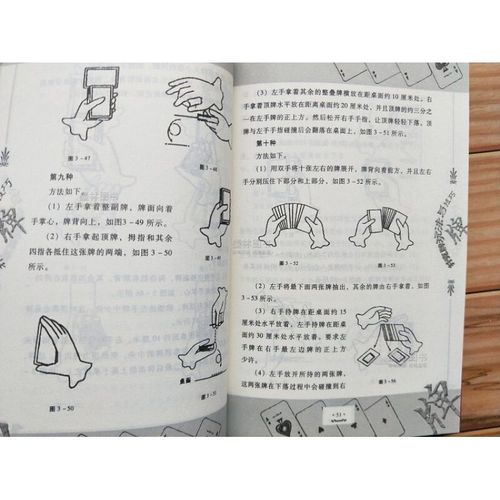 图3-47
图3-48
第九种
方法如下。
(1)左手拿着整副牌,牌面向着
手掌心,牌背向上,如图3-49所示。
(2)右手拿起顶牌,拇指和其余
四指各抵住这张牌的两端,如图3-50
所示。
图3-50
桌面
(3)左手拿着其余的整叠牌横放在距桌面约10厘米处,右
手拿着顶牌水平放在距离桌面约20厘米处,并且顶牌的约三分之
一在左手牌的正上方。然后松开右手手指,让顶牌轻轻落下,顶
牌与左手手指碰撞后会翻落在桌面上,如图3-51所示。
第十种
方法如下。
(1)用双手将十张左右的牌展开,牌背向着前方,并且左右
手分别压住下部分和上部分,如图3-52所示。
图3-52
图3-53
(2)左手将最下面两张牌抽出,其余的牌由右手拿着,如图
3-53所示。
(3)右手持牌在距桌面约15
厘米处水平放着,左手持牌在距桌
面约30厘米处水平放着。要求左手
牌在右手最左边牌的正上方
少许。
图3-54
(4)左手放开所持的两张牌,
这两张牌在下落过程中会碰撞到右
51
牌